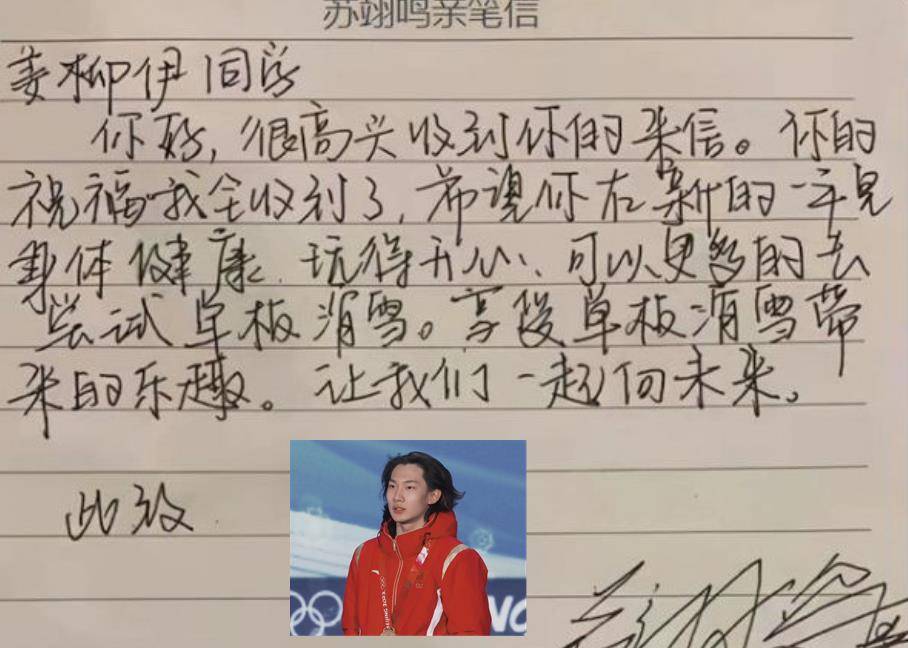 苏翊鸣亲笔信
姜柳伊同学
你好,很高兴收到你的来信。你的
祝福我全收到了,希望你在新的一年里
身体健康、玩得开心、可以更多的去
尝试单板滑雪。享受单板滑雪带
来的乐趣。让我们一起向未来。
此致